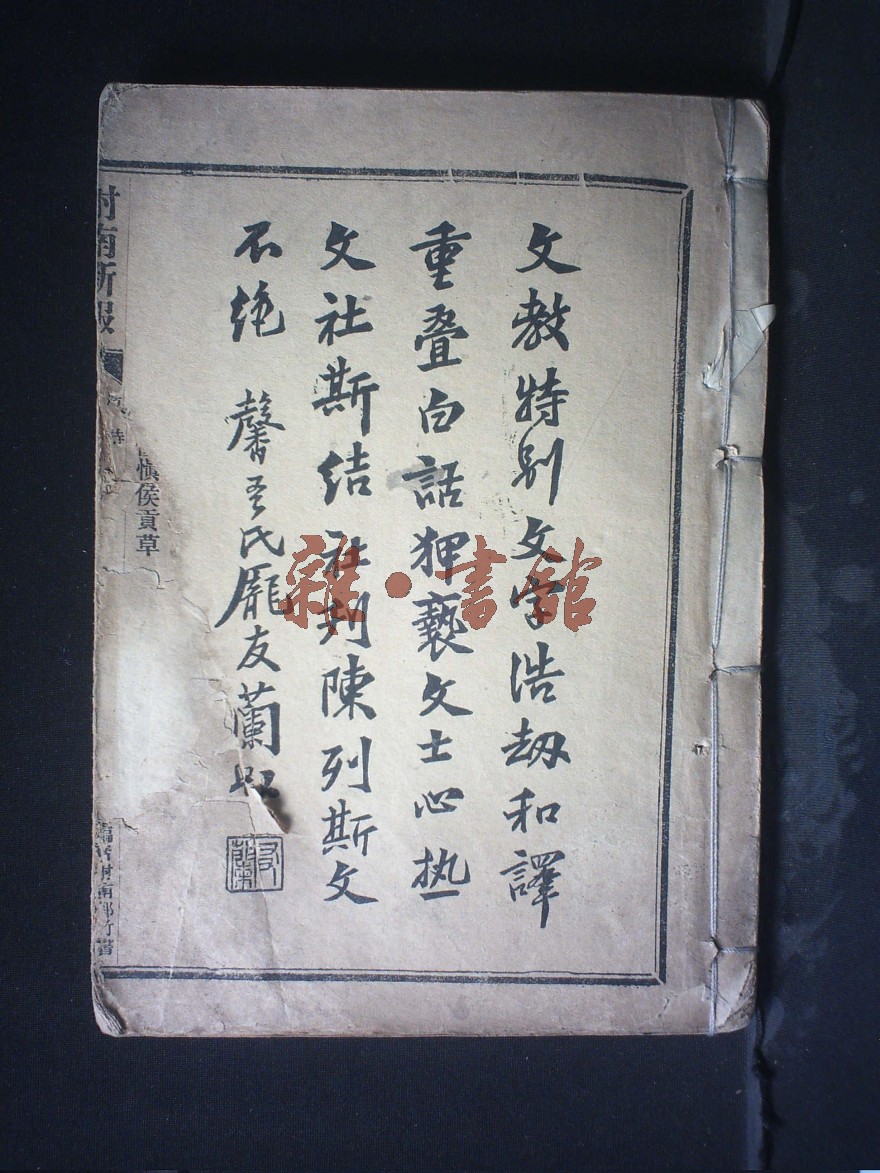 文教特别文字浩劫和譯
重叠白話狎亵文士心热
文社斯结社列陳列斯文
不绝 馨吾氏龎友蘭
慎侯貢草
雜·書館